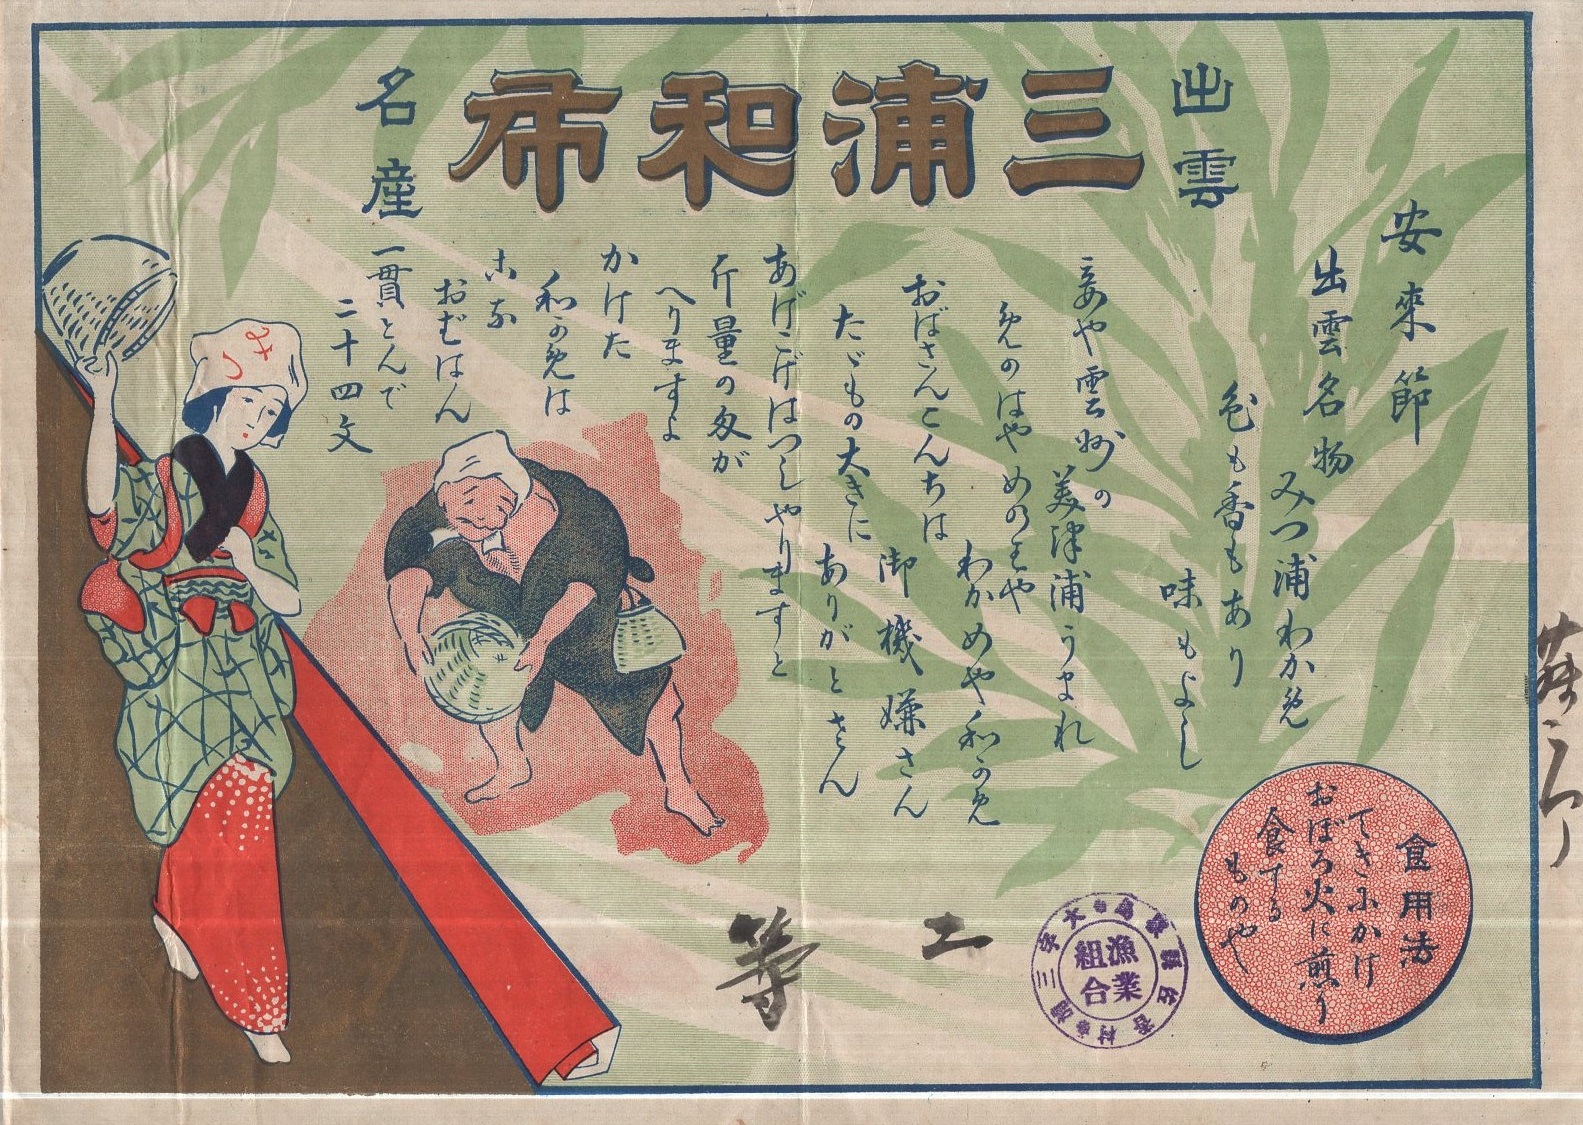 出雲
三浦和布
名産
安来節
出雲名物
みつ浦わかめ
色も香もあり
味もよし
妾や雲州の
美津浦うまれ
めのはやめのをや
わかめや和かめ
おばさんこんちは
御機嫌さん
たゞもの大きに
ありがとさん
あげこげはつしやりますと
斤量の匁が
へりますよ
かけた
和かめは
こな
おむはん
一貫とんで
二十四文
食用法
てきにかけ
おぼろ火に煎り
食する
ものや
漁業
組合
大字三
等